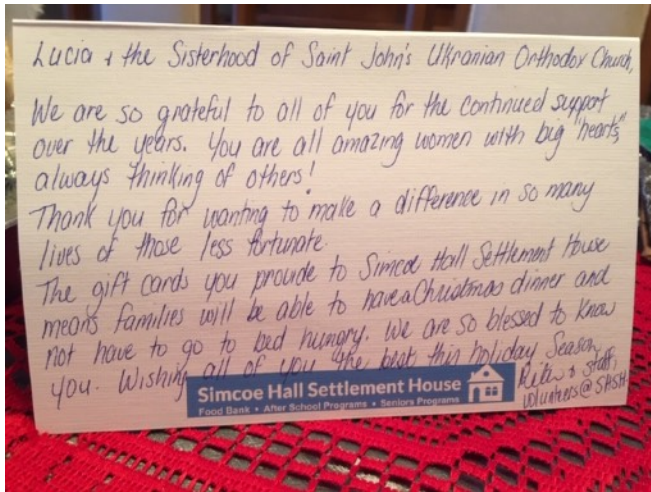 Lucia & the Sisterhood of Saint John's Ukranian Orthodox Church,
We are so grateful to all of you for the continued support
over the years. You are all amazing women with big "hearts,"
always thinking of others!
Thank you for wanting to make a difference in so many
lives of those less fortunate.
The gift cards you provide to Simcoe Hall Settlement House
means families will be able to have a Christmas dinner and
not have to go to bed hungry. We are so blessed to know
you. Wishing all of you the best this holiday season,
Rita & staff,
volunteers @ SHSH.
Simcoe Hall Settlement House
Food Bank • After School Programs • Seniors Programs